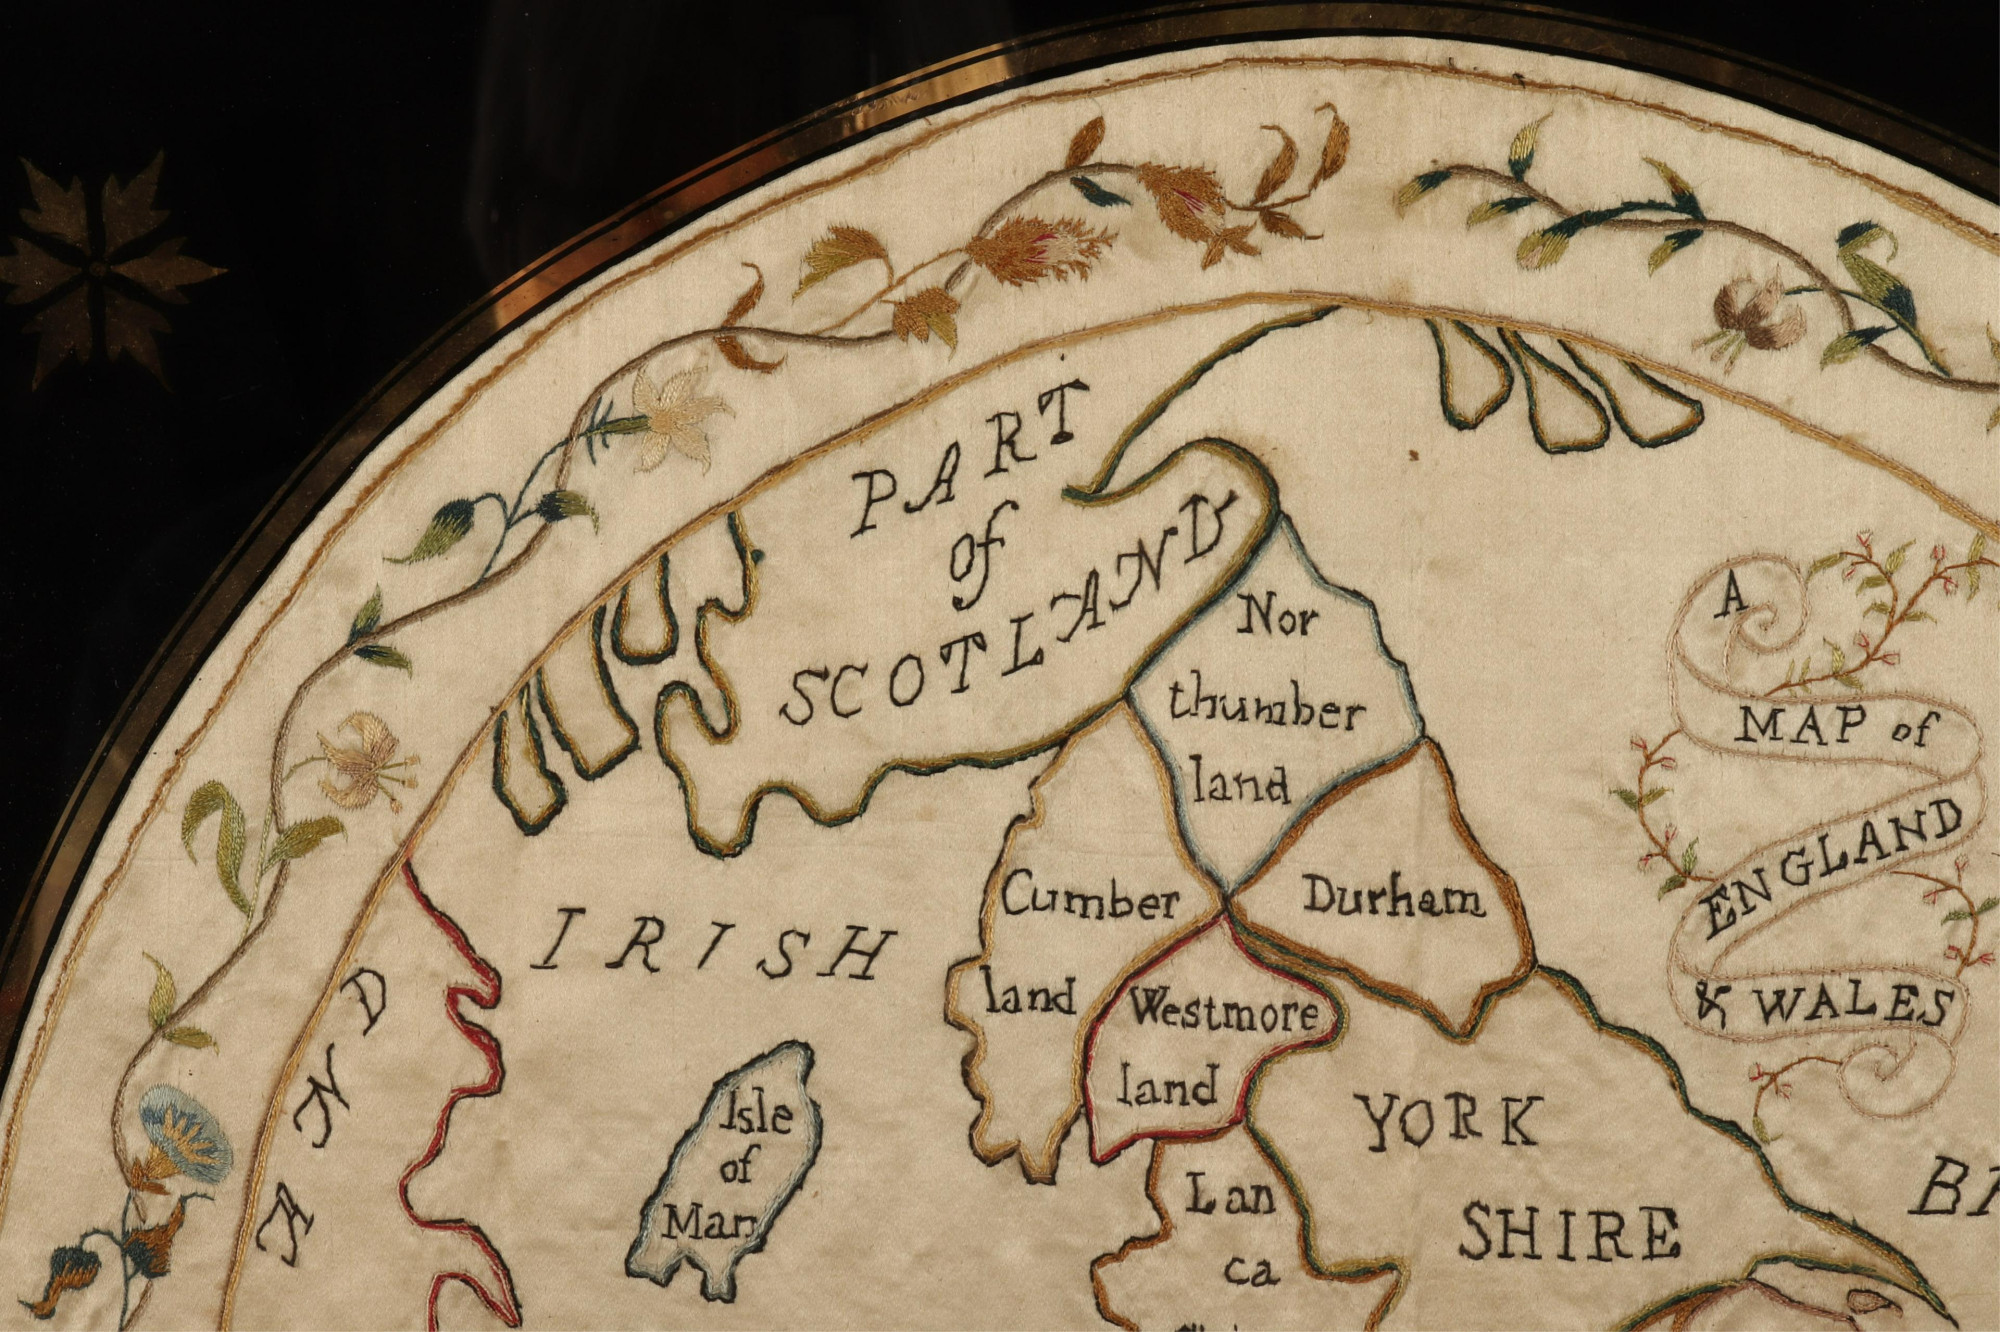 PART
of
SCOTLAND
Nor
thumber
land
A
MAP of
ENGLAND
& WALES
Cumber
land
Durham
IRISH
Westmore
land
AND
Isle
of
Man
YORK
SHIRE
Lan
ca